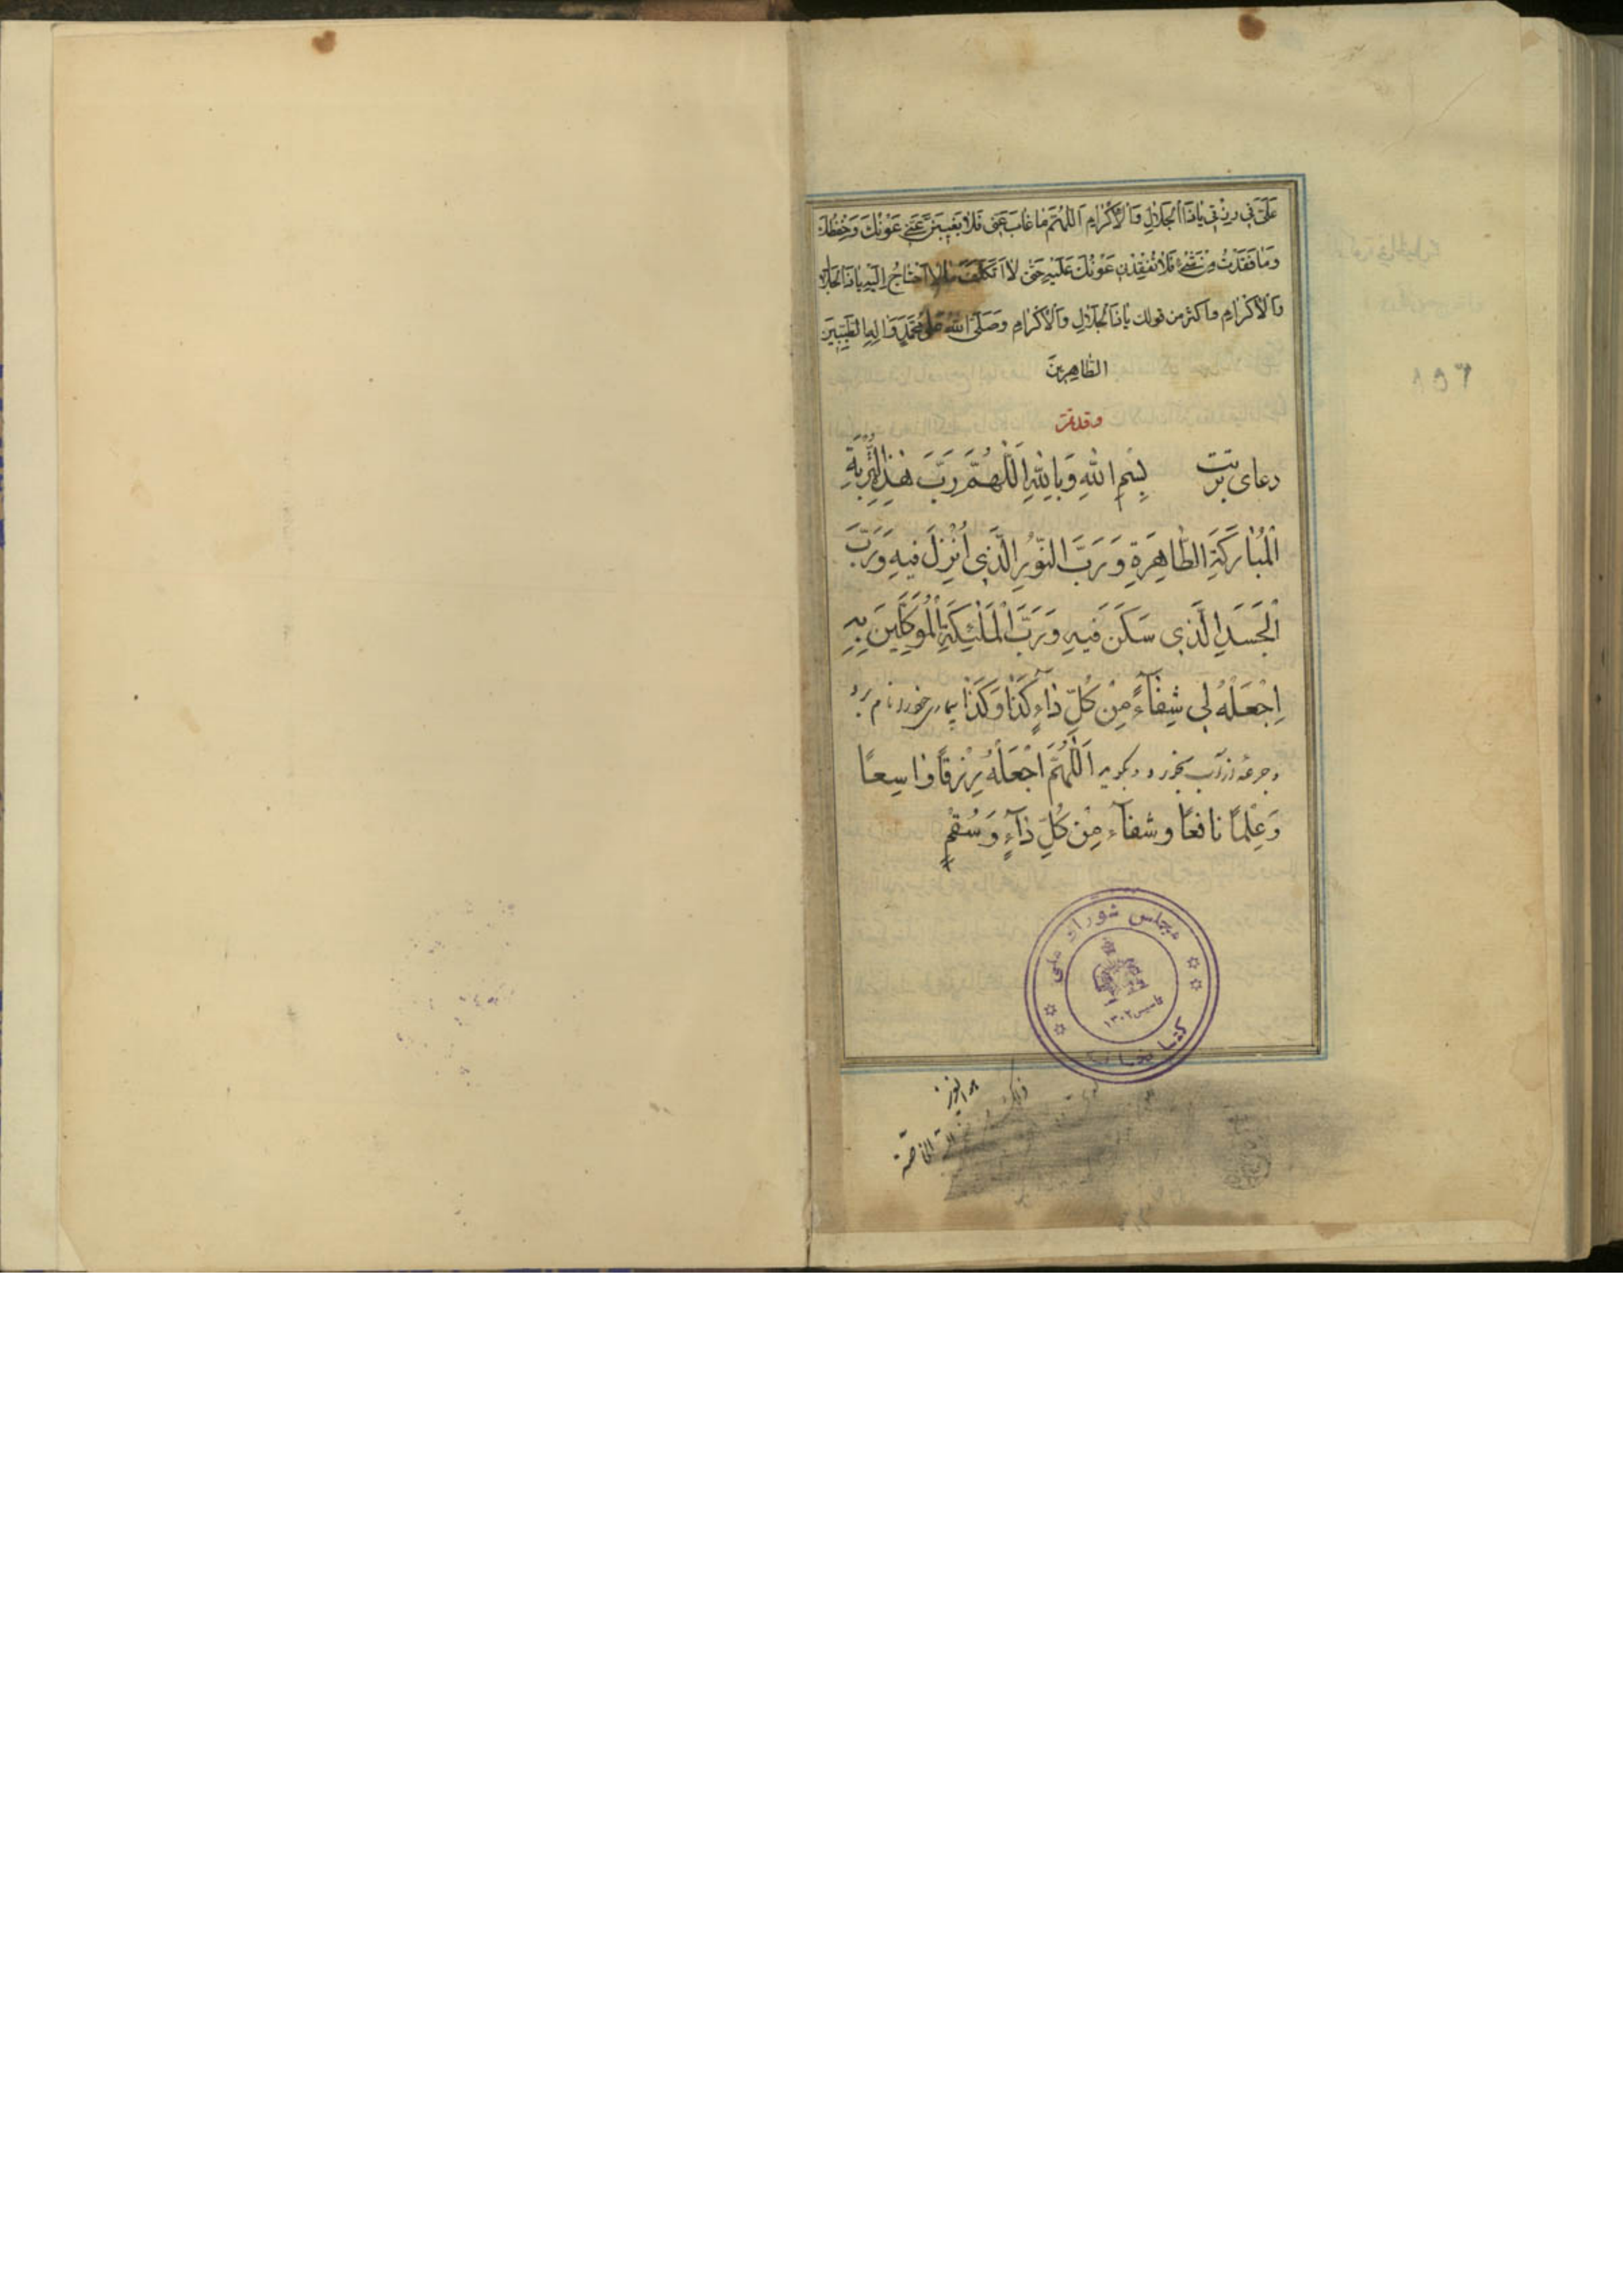 عَلَيَّ فِي رِزْقِي يَا ذَا الْجَلَالِ وَالْاِكْرَامِ اَللّٰهُمَّ مَا غَابَ عَنِّي فَلَا يَغِيبَنَّ عَنِّي عَوْنُكَ وَحِفْظُكَ
وَمَا فَقَدْتُ مِنْ شَيْءٍ فَلَا تُفْقِدْنِي عَوْنَكَ عَلَيْهِ حَتّٰى لَا اَتَكَلَّفَ مَا لَا اَحْتَاجُ اِلَيْهِ يَا ذَا الْجَلَالِ
وَالْاِكْرَامِ واكثر من قولك يَا ذَا الْجَلَالِ وَالْاِكْرَامِ وَصَلَّى اللّٰهُ عَلٰى مُحَمَّدٍ وَاٰلِهِ الطَّيِّبِينَ
الطَّاهِرِينَ
وقد تمت
دعای تربت بِسْمِ اللّٰهِ وَبِاللّٰهِ اَللّٰهُمَّ رَبَّ هٰذِهِ التُّرْبَةِ
الْمُبَارَكَةِ الطَّاهِرَةِ وَرَبَّ النُّورِ الَّذِي اُنْزِلَ فِيهِ وَرَبَّ
الْجَسَدِ الَّذِي سَكَنَ فِيهِ وَرَبَّ الْمَلٰئِكَةِ الْمُوَكَّلِينَ بِهِ
اِجْعَلْهُ لِي شِفَآءً مِنْ كُلِّ دَآءٍ كَذَا وَكَذَا بیماری خود را نام برد
و جرعه از آب بخورد و بگوید اَللّٰهُمَّ اجْعَلْهُ رِزْقًا وَاسِعًا
وَعِلْمًا نَافِعًا وشفآء مِنْ كُلِّ دَآءٍ وَسُقْمٍ
مجلس شورای ملی
تاسیس ۱۳۰۲
کتابخانه